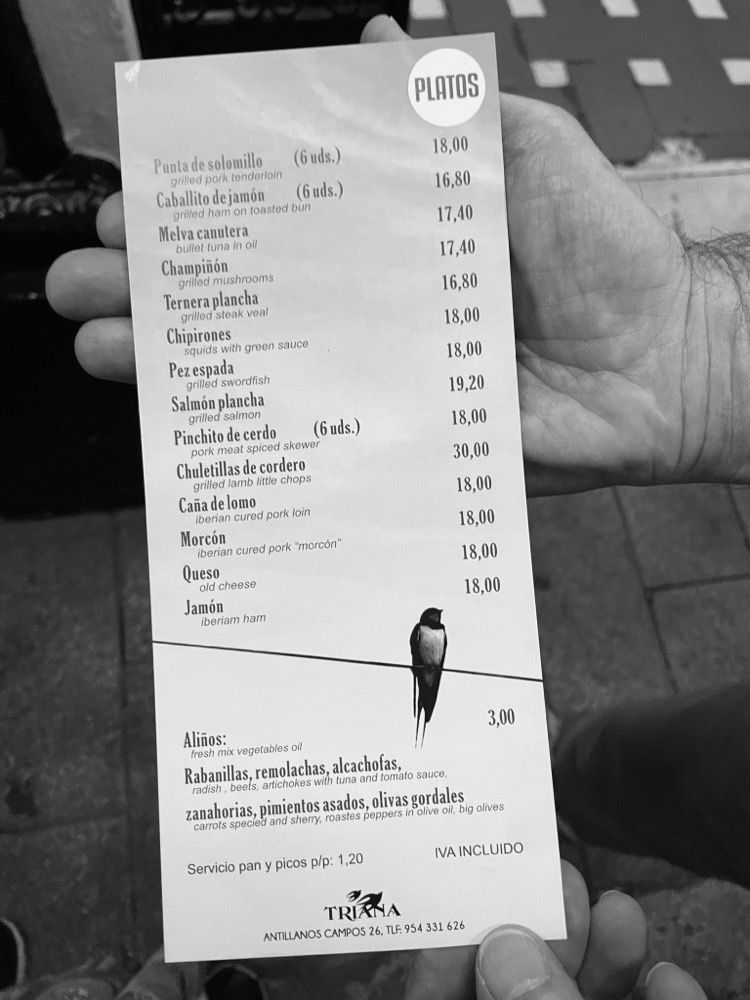 PLATOS
Punta de solomillo (6 uds.) 18,00
grilled pork tenderloin
Caballito de jamón (6 uds.) 16,80
grilled ham on toasted bun
Melva canutera 17,40
bullet tuna in oil
Champiñón 17,40
grilled mushrooms
Ternera plancha 16,80
grilled steak veal
Chipirones 18,00
squids with green sauce
Pez espada 18,00
grilled swordfish
Salmón plancha 19,20
grilled salmon
Pinchito de cerdo (6 uds.) 18,00
pork meat spiced skewer
Chuletillas de cordero 30,00
grilled lamb little chops
Caña de lomo 18,00
iberian cured pork loin
Morcón 18,00
iberian cured pork “morcón”
Queso 18,00
old cheese
Jamón 18,00
iberiam ham
Aliños: 3,00
fresh mix vegetables oil
Rabanillas, remolachas, alcachofas,
radish , beets, artichokes with tuna and tomato sauce,
zanahorias, pimientos asados, olivas gordales
carrots specied and sherry, roastes peppers in olive oil, big olives
Servicio pan y picos p/p: 1,20 IVA INCLUIDO
TRIANA
ANTILLANOS CAMPOS 26, TLF: 954 331 626